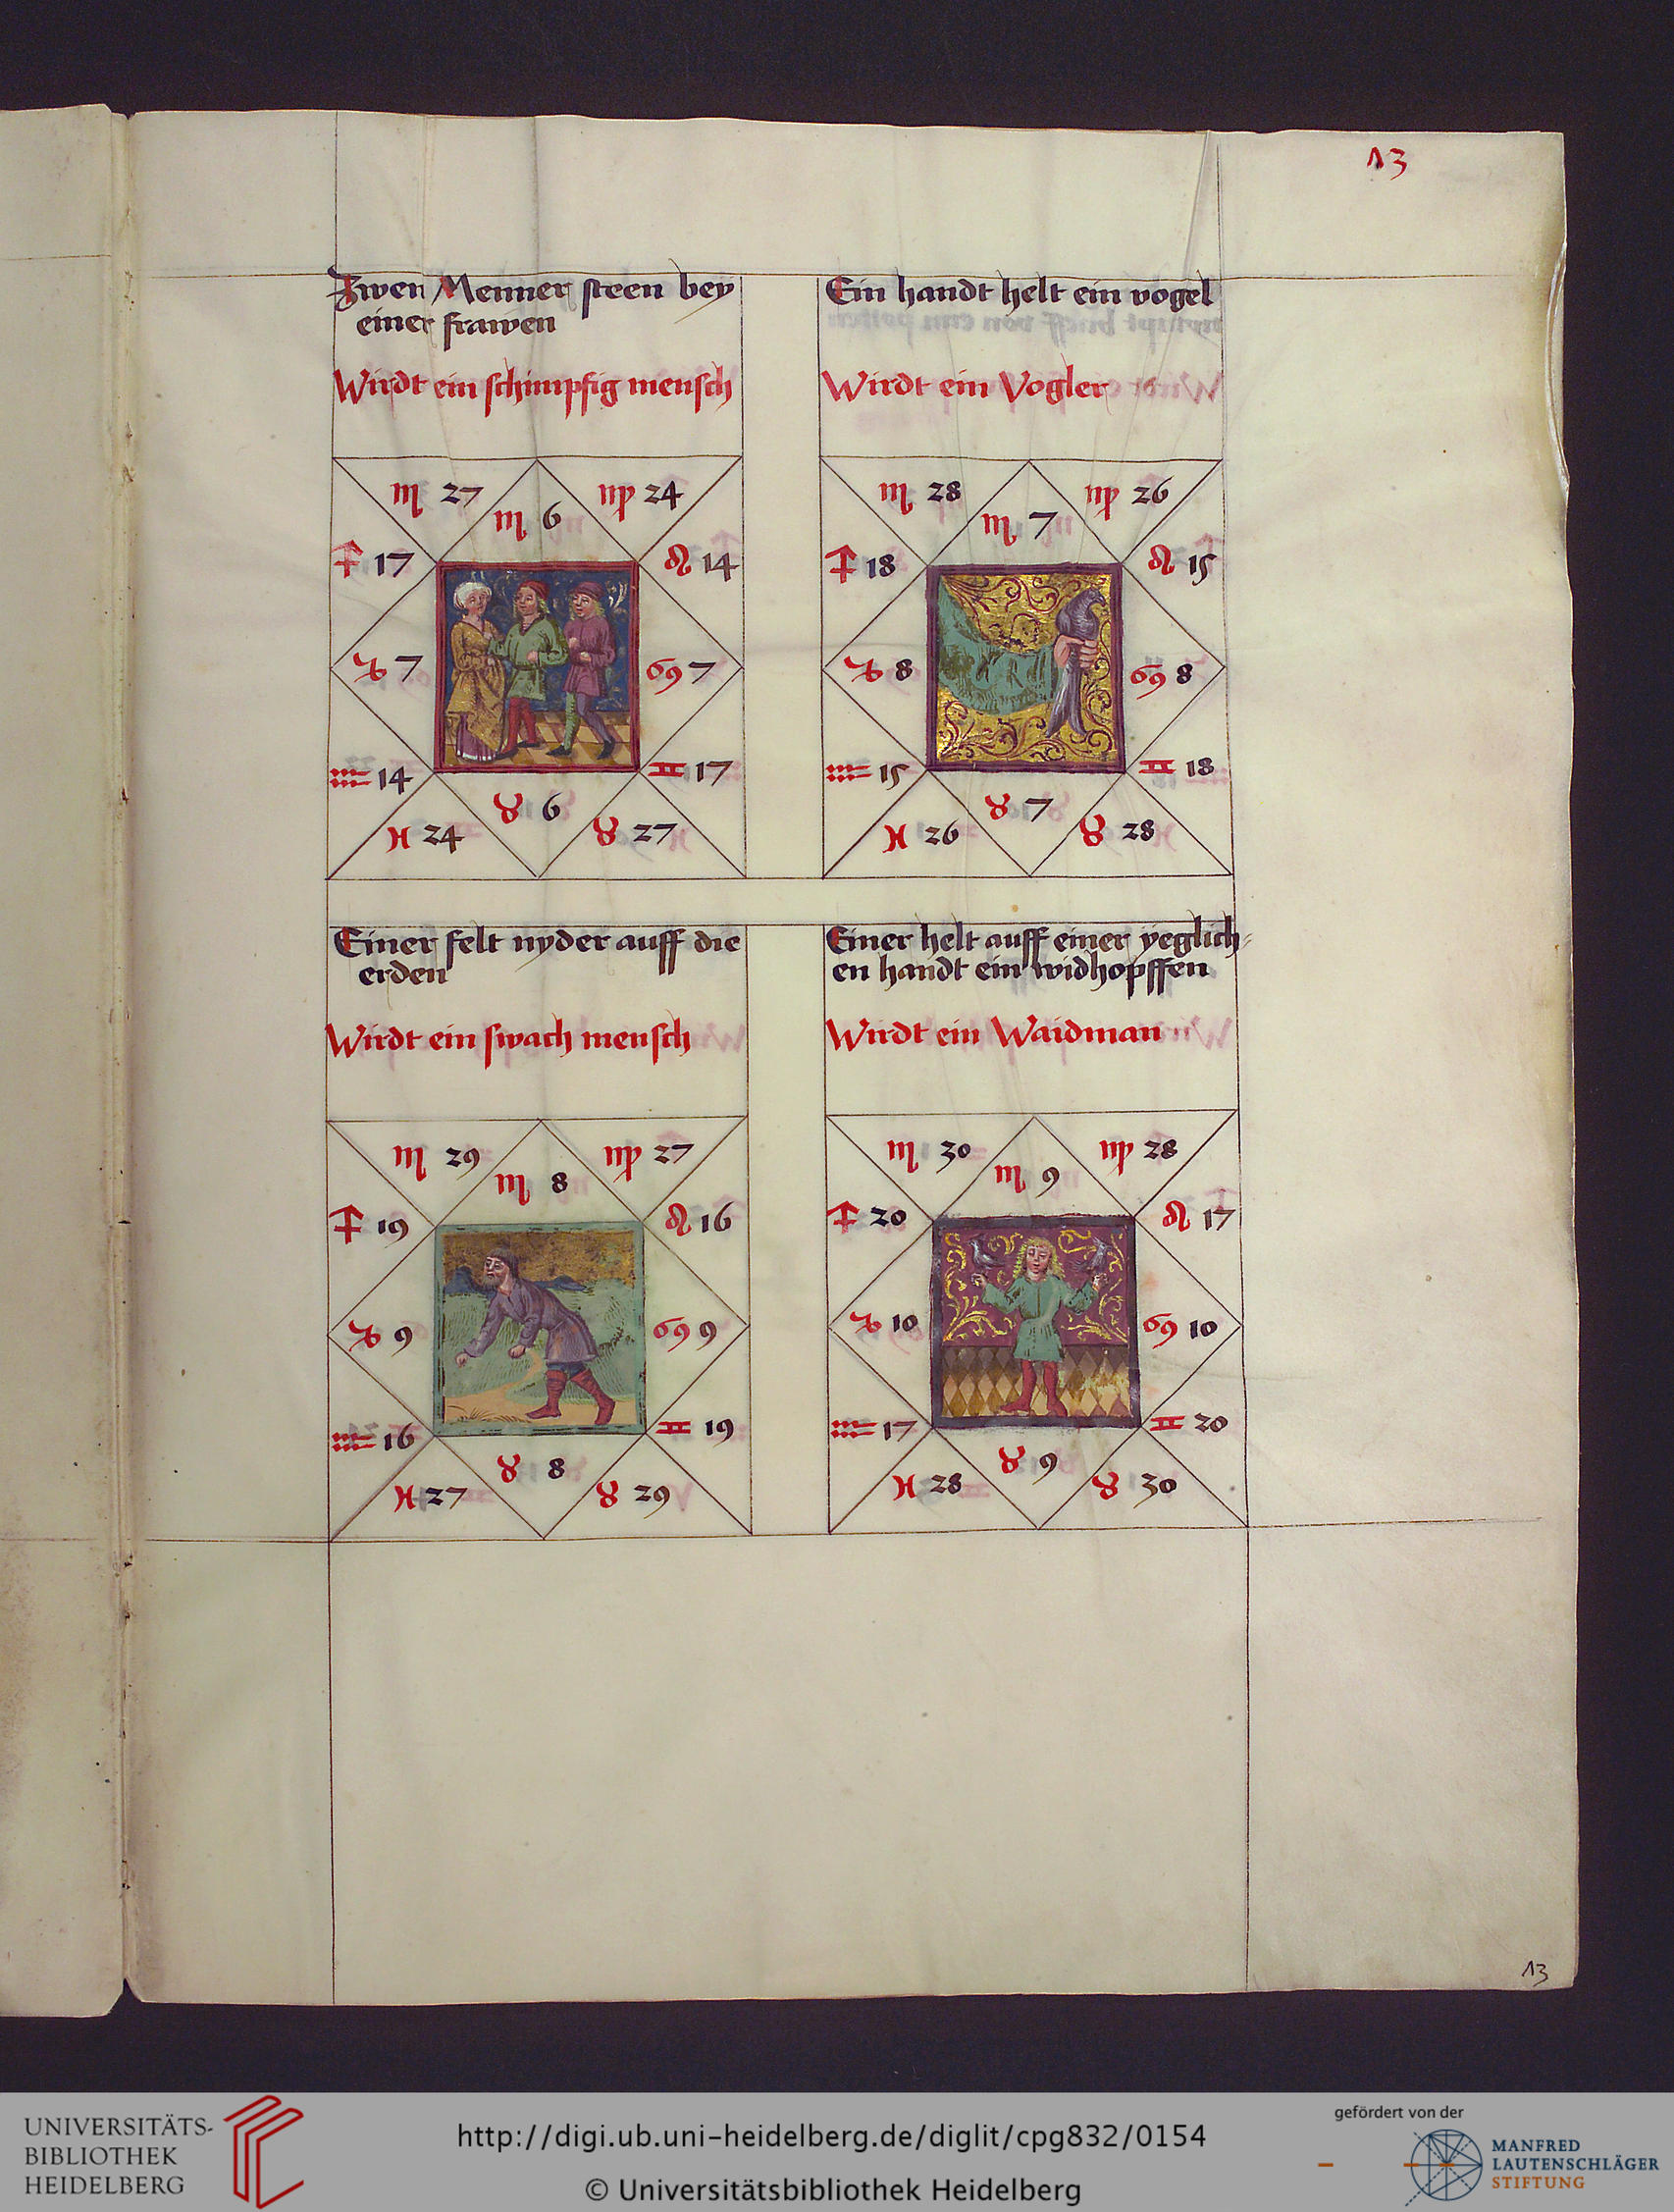 13
Zwen Menner steen bey
einer frawen
Wirdt ein schimpfig mensch
♏ 27
♍ 24
♏ 6
♐ 17
♌ 14
♑ 7
♋ 7
♒ 14
♊ 17
♉ 6
♓ 24
♉ 27
Ein handt helt ein vogel
Wirdt ein Vogler
♏ 28
♍ 26
♏ 7
♐ 18
♌ 15
♑ 8
♋ 8
♒ 15
♊ 18
♉ 7
♓ 26
♉ 28
Einer felt nyder auff die
erden
Wirdt ein swach mensch
♏ 29
♍ 27
♏ 8
♐ 19
♌ 16
♑ 9
♋ 9
♒ 16
♊ 19
♉ 8
♓ 27
♉ 29
Einer helt auff einer yeglich-
en handt ein widhopffen
Wirdt ein Waidman
♏ 30
♍ 28
♏ 9
♐ 20
♌ 17
♑ 10
♋ 10
♒ 17
♊ 20
♉ 9
♓ 28
♉ 30
13
UNIVERSITÄTS-
BIBLIOTHEK
HEIDELBERG
http://digi.ub.uni-heidelberg.de/diglit/cpg832/0154
© Universitätsbibliothek Heidelberg
gefördert von der
MANFRED
LAUTENSCHLÄGER
STIFTUNG